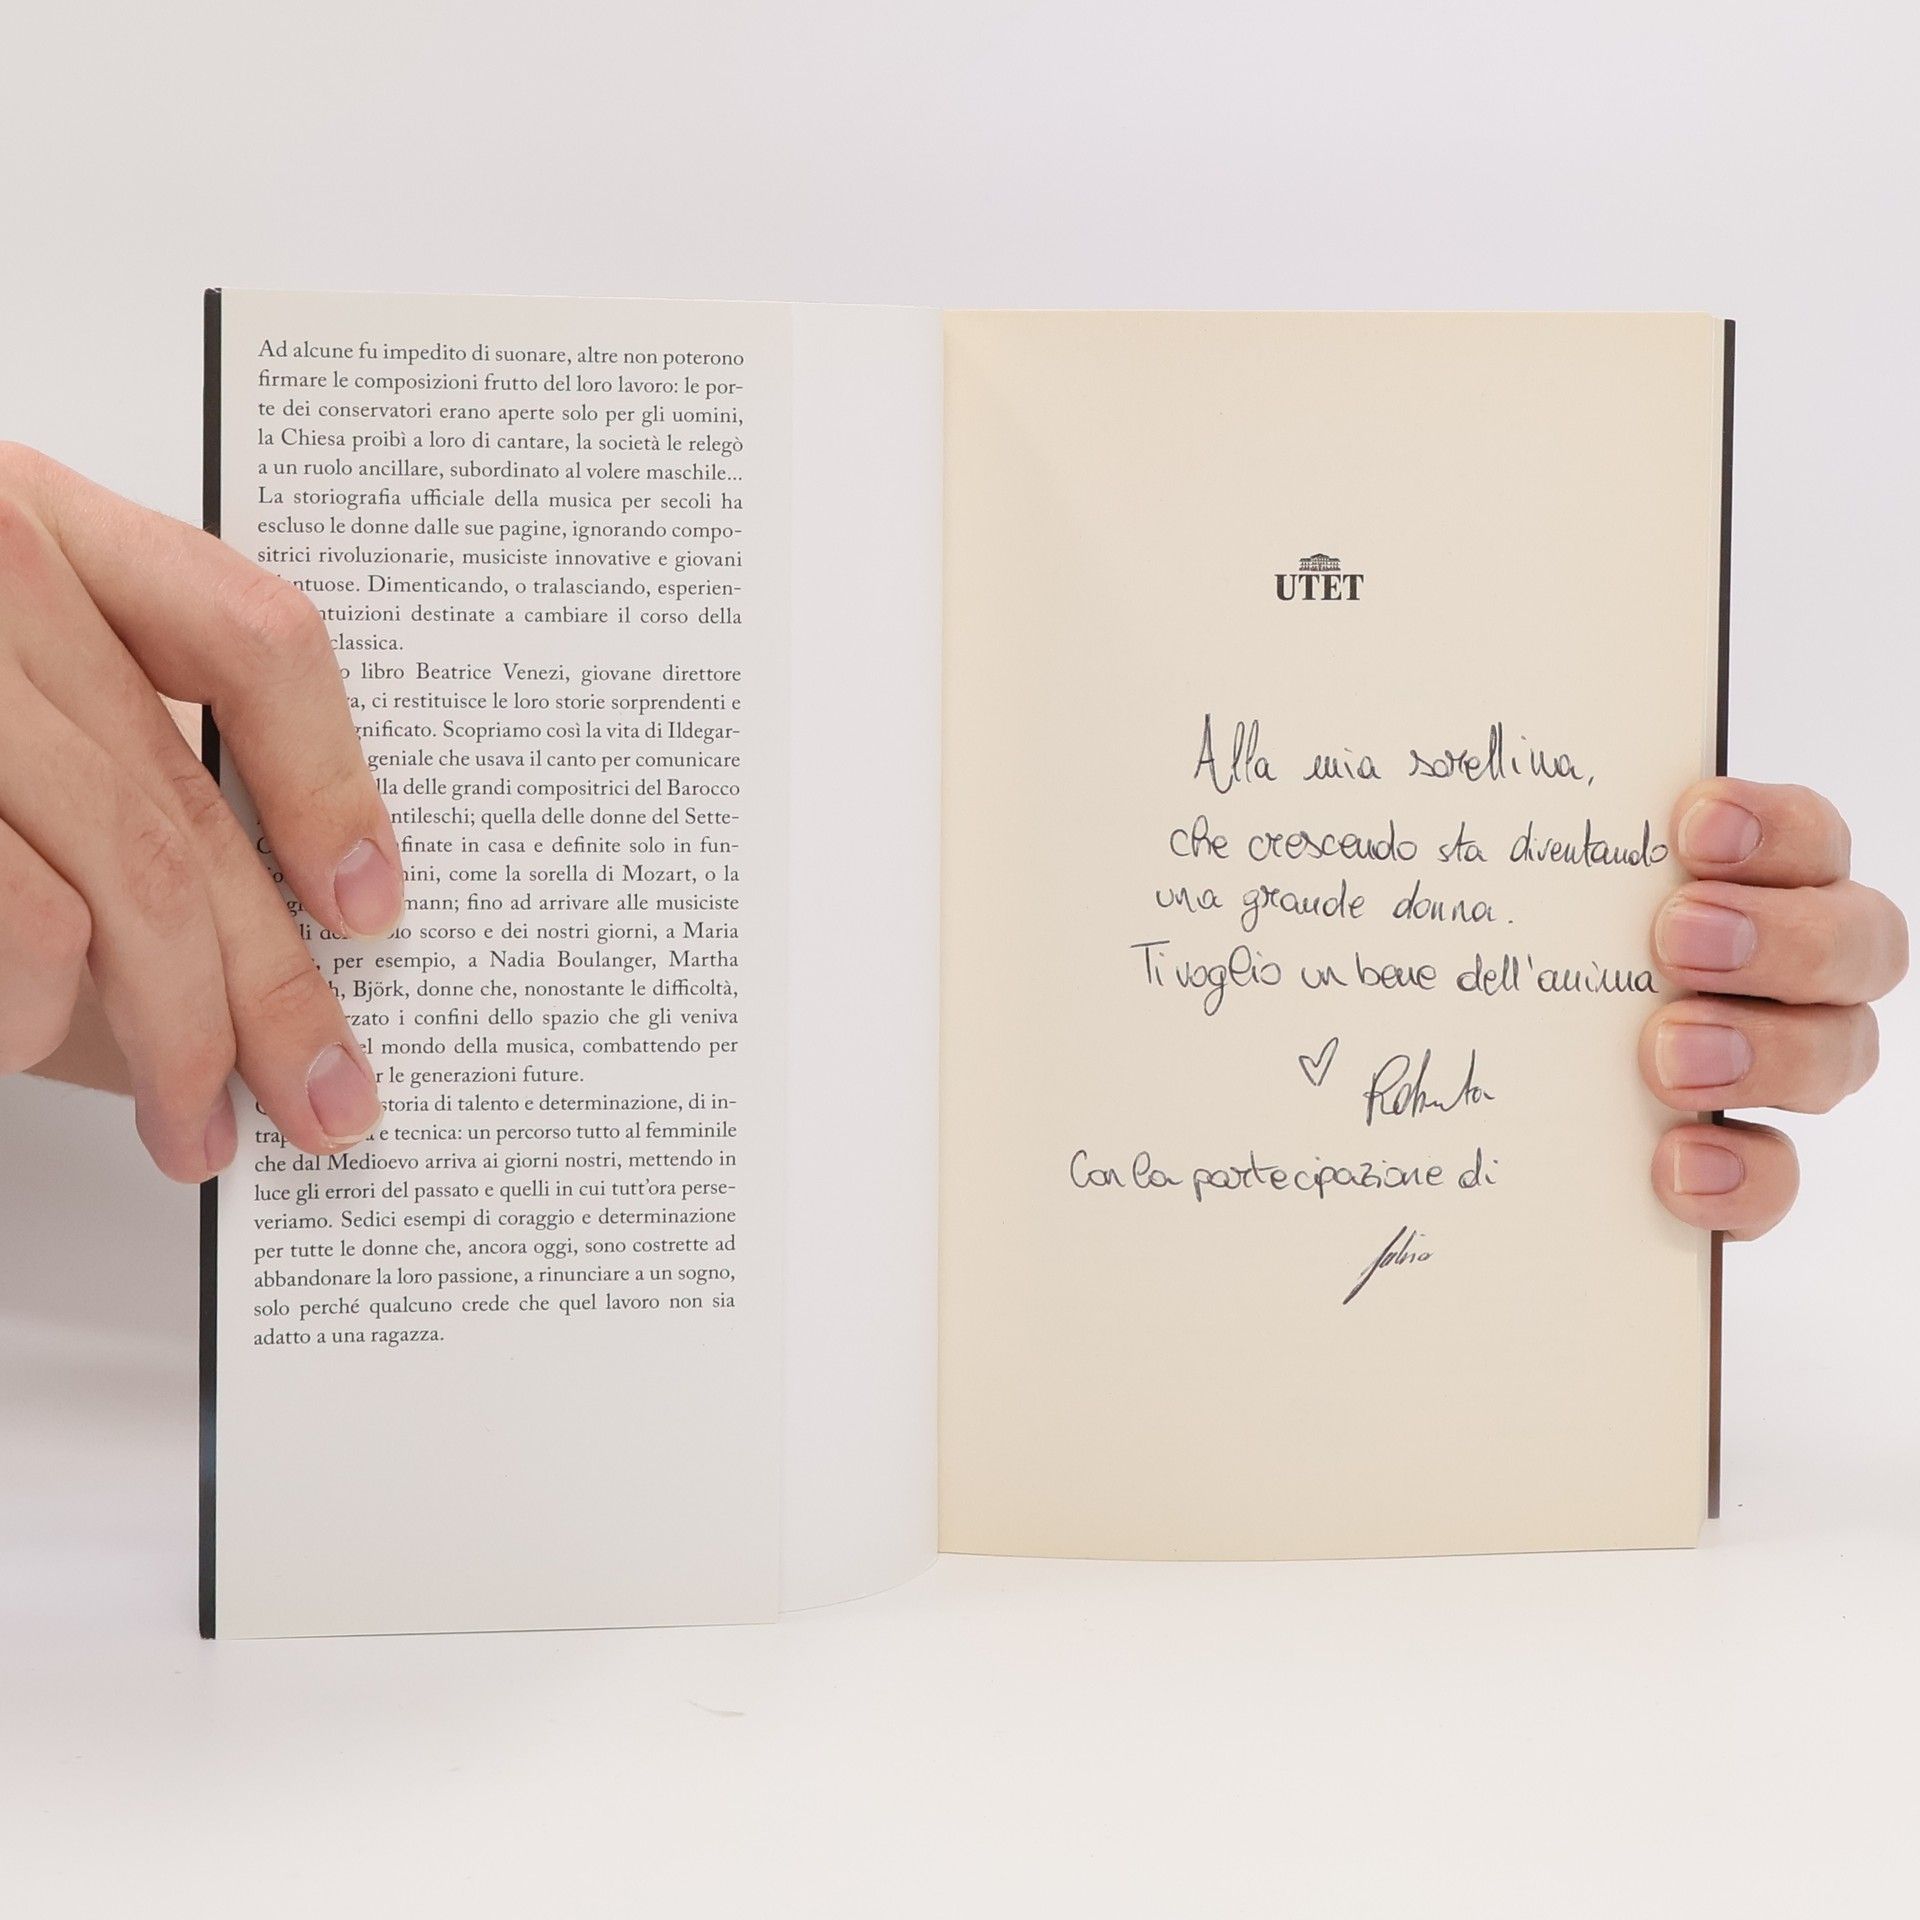 Ad alcune fu impedito di suonare, altre non poterono
firmare le composizioni frutto del loro lavoro: le por-
te dei conservatori erano aperte solo per gli uomini,
la Chiesa proibì a loro di cantare, la società le relegò
a un ruolo ancillare, subordinato al volere maschile...
La storiografia ufficiale della musica per secoli ha
escluso le donne dalle sue pagine, ignorando compo-
sitrici rivoluzionarie, musiciste innovative e giovani
ntuose. Dimenticando, o tralasciando, esperien-
ntuizioni destinate a cambiare il corso della
classica.
o libro Beatrice Venezi, giovane direttore
a, ci restituisce le loro storie sorprendenti e
gnificato. Scopriamo così la vita di Ildegar-
geniale che usava il canto per comunicare
lla delle grandi compositrici del Barocco
ntileschi; quella delle donne del Sette-
finate in casa e definite solo in fun-
nini, come la sorella di Mozart, o la
mann; fino ad arrivare alle musiciste
lo scorso e dei nostri giorni, a Maria
, per esempio, a Nadia Boulanger, Martha
h, Björk, donne che, nonostante le difficoltà,
rzato i confini dello spazio che gli veniva
el mondo della musica, combattendo per
r le generazioni future.
storia di talento e determinazione, di in-
trap e tecnica: un percorso tutto al femminile
che dal Medioevo arriva ai giorni nostri, mettendo in
luce gli errori del passato e quelli in cui tutt'ora perse-
veriamo. Sedici esempi di coraggio e determinazione
per tutte le donne che, ancora oggi, sono costrette ad
abbandonare la loro passione, a rinunciare a un sogno,
solo perché qualcuno crede che quel lavoro non sia
adatto a una ragazza.
UTET
Alla mia sorellina,
che crescendo sta diventando
una grande donna.
Ti voglio un bene dell'anima
Roberta
Con la partecipazione di